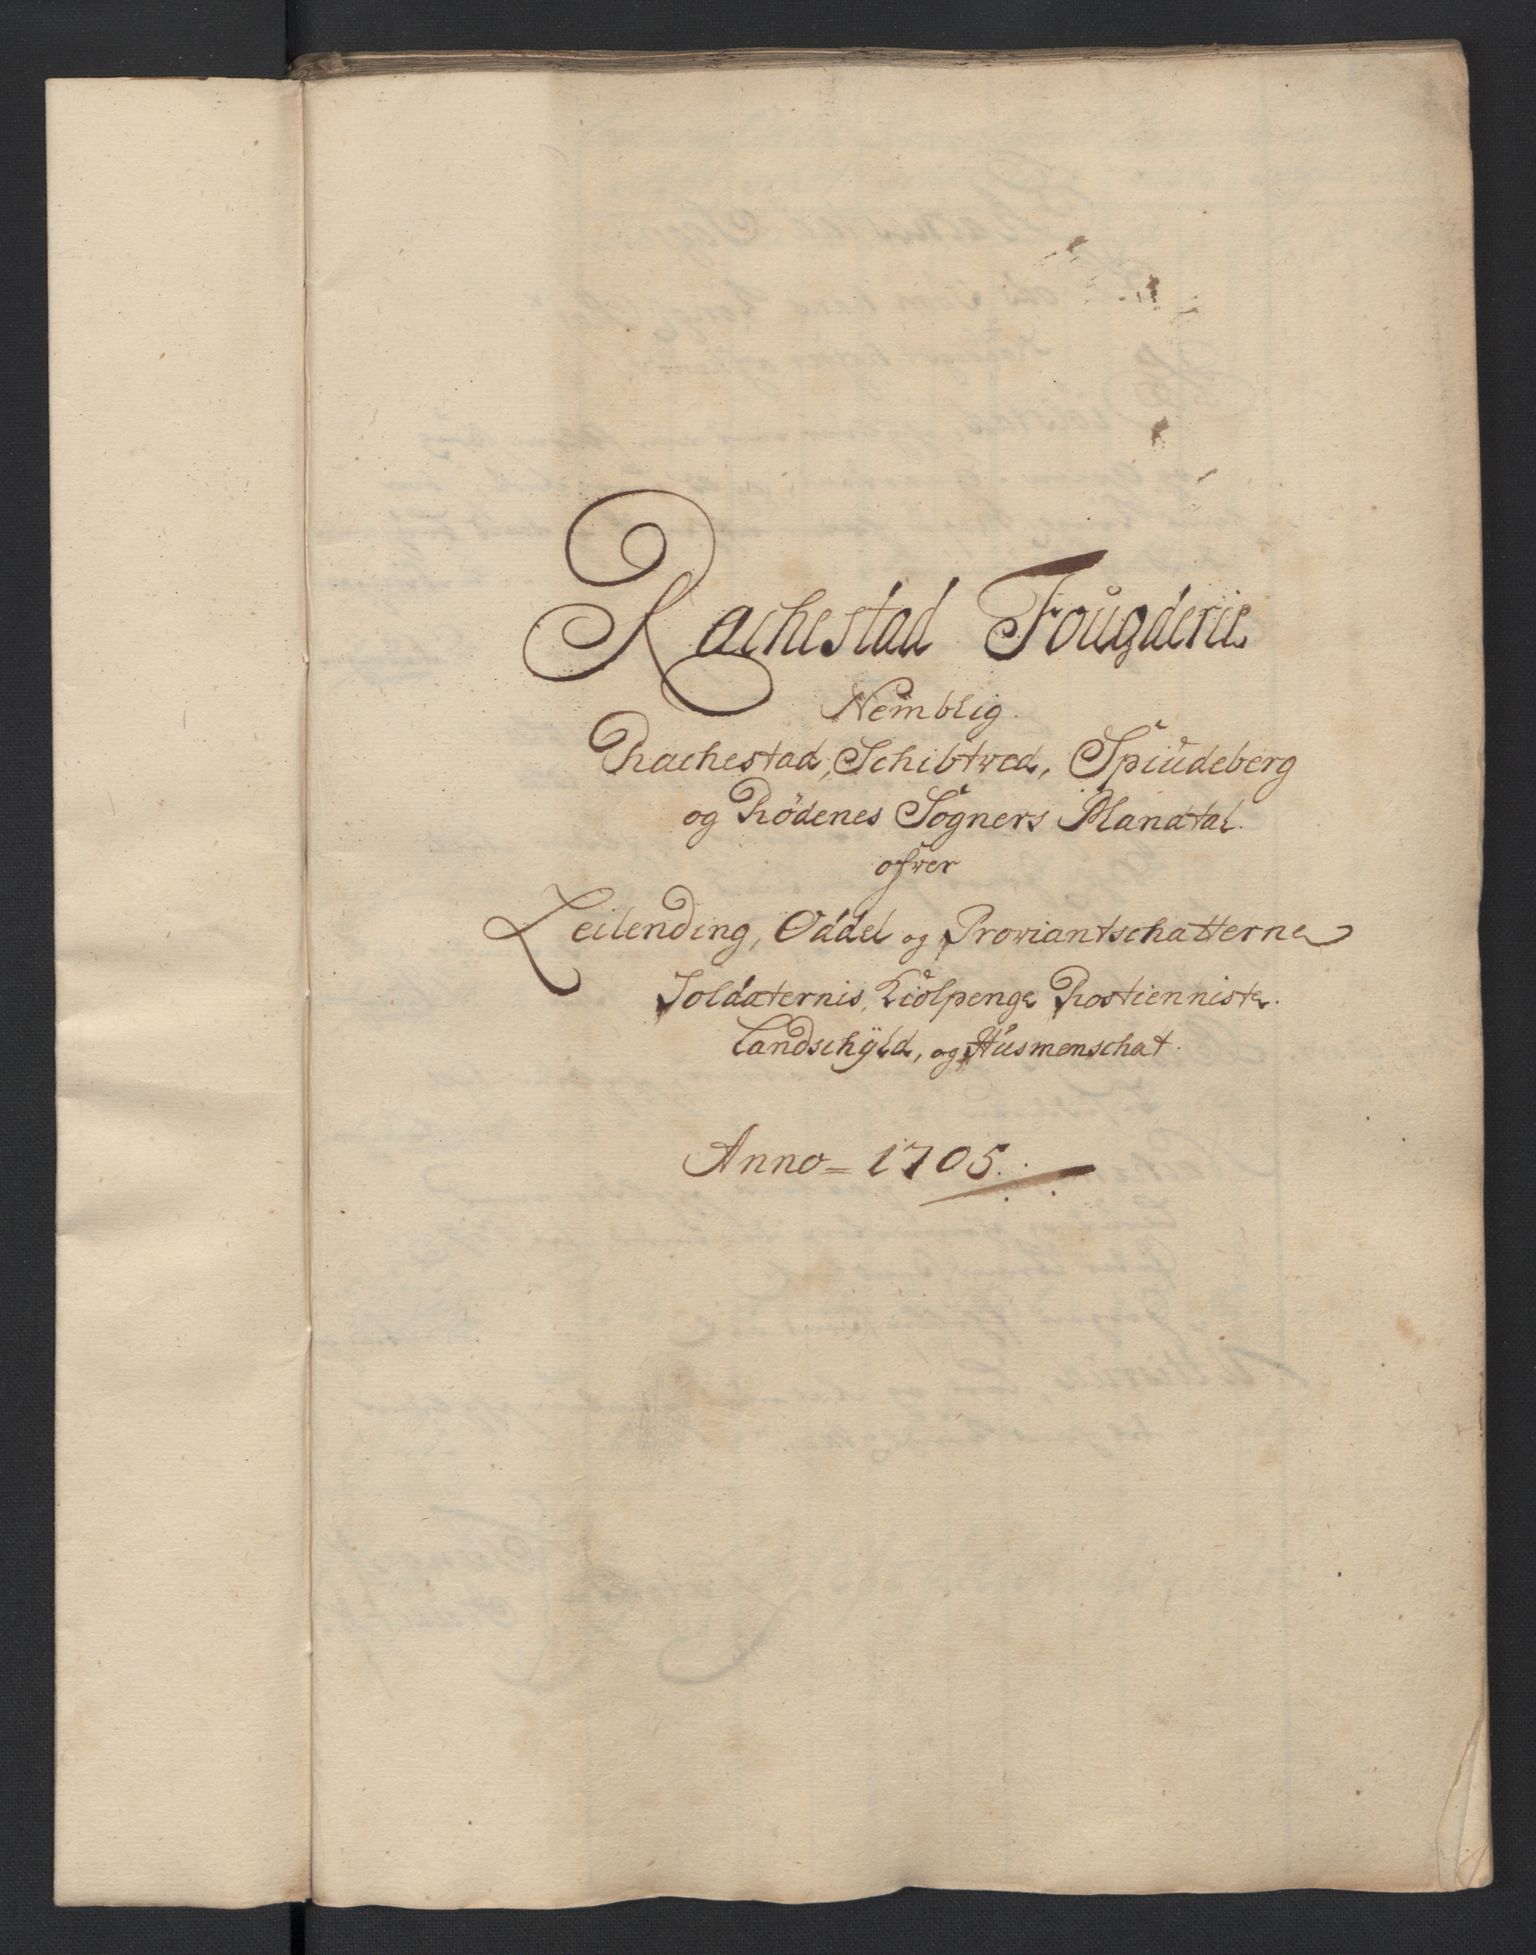 Rachestad Foügderie
Nemblig.
Rachestad, Schibtved, Spiüdeberg
og Rödenes Sogners Mandtal.
ofver
Leilending, Oddel og Proviantschatterne
Soldaternis, Kiölpenge Rostienniste.
Landschÿld, og Hüsmenschat.
Anno = 1705.